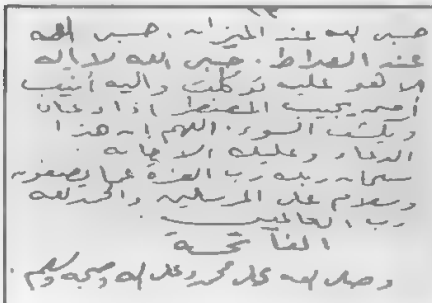 ١٣
حسبي الله عند الميزان . حسبي الله
عند الصراط . حسبي الله لا إله
إلا هو عليه توكلت وإليه أنيب
أمن يجيب المضطر إذا دعاه
ويكشف السوء . اللهم إن هذا
الدعاء وعليك الإجابة .
سبحان ربك رب العزة عما يصفون
وسلام على المرسلين والحمد لله
رب العالمين
الفاتحة
وصلى الله على محمد وعلى آله وصحبه وسلم .